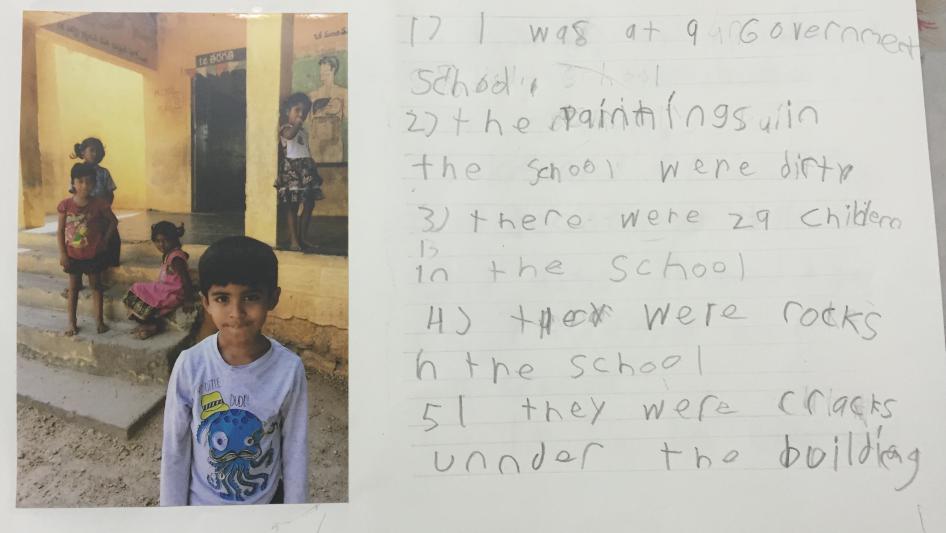 1) I was at a Government
School.
2) the paintings in
the school were dirty
3) there were 29 childern
in the school
4) they were rocks
n the school
5) they were cracks
unnder the building
DUDE